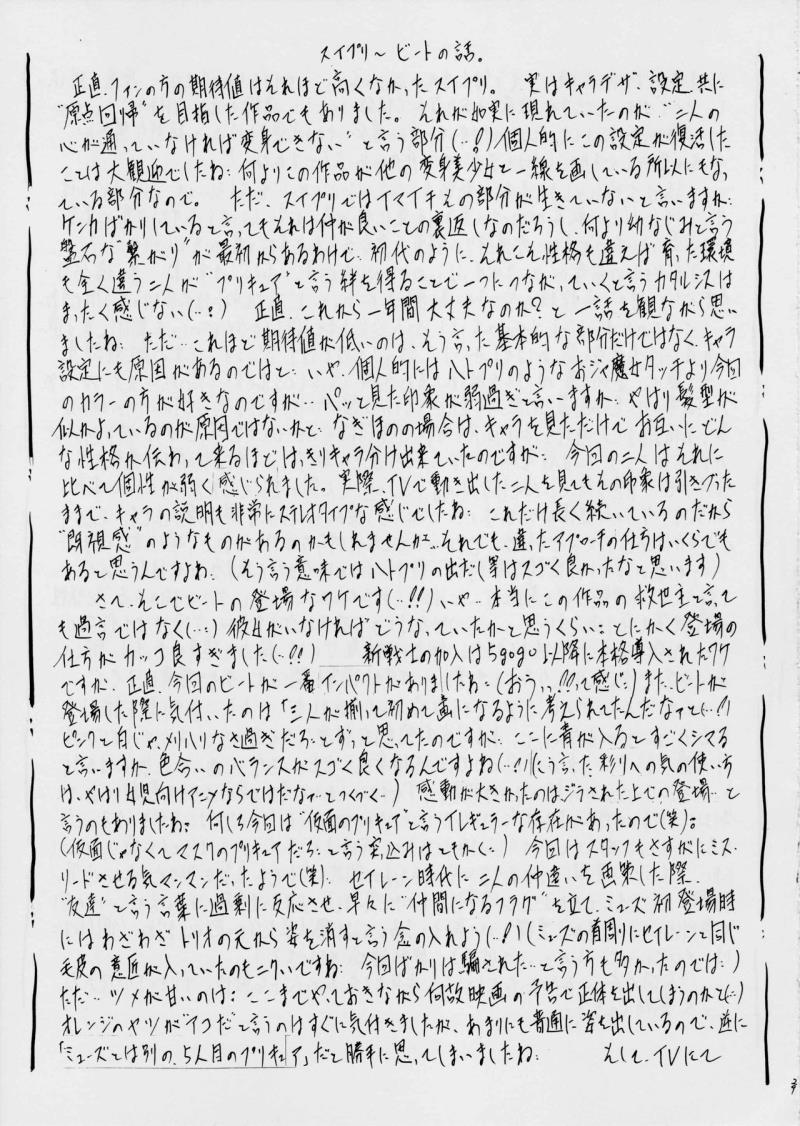 スイプリ～ ビートの話。
正直、ファンの方の期待値はそれほど高くなかったスイプリ。 実はキャラデザ、設定共に
“原点回帰”を目指した作品でもありました。それが如実に現れていたのが、“二人の
心が通っていなければ変身できない”と言う部分(…!)個人的にこの設定が復活した
ことは大歓迎でしたね…何よりこの作品が他の変身美少女と一線を画している所以にもなっ
ている部分なので。 ただ、スイプリではイマイチその部分が生きていないと言いますか…
ケンカばかりしていると言ってもそれは仲が良いことの裏返しなのだろうし、何より幼なじみと言う
盤石な“繋がり”が最初からあるわけで、初代のように、それこそ性格も違えば育った環境
も全く違う二人が“プリキュア”と言う絆を得ることで一つにつながっていくと言うカタルシスは
まったく感じない(…!) 正直、これから一年間大丈夫なのか?と一話を観ながら思い
ましたね… ただ…これほど期待値が低いのは、そう言った基本的な部分だけではなく、キャラ
設定にも原因があるのではと… いや、個人的にはハトプリのようなおジャ魔女タッチより今回
のカラーの方が好きなのですが… パッと見た印象が弱過ぎと言いますか… やはり髪型が
似かよっているのが原因ではないかと… なぎほのの場合は、キャラを見ただけでお互いにどん
な性格か伝わって来るほどはっきりキャラ分け出来ていたのですが… 今回の二人はそれに
比べて個性が弱く感じられました。実際、TVで動き出した二人を見てもその印象は引きずった
ままで、キャラの説明も非常にステレオタイプな感じでしたね… これだけ長く続いているのだから
“既視感”のようなものがあるのかもしれませんが…それでも、違ったアプローチの仕方はいくらでも
あると思うんですよね… (そう言う意味ではハトプリの出だし等はスゴく良かったなと思います)
さて、そこでビートの登場なワケです(…!!)いや…本当にこの作品の救世主と言って
も過言ではなく(…!)彼女がいなければどうなっていたかと思うくらい…とにかく登場の
仕方がカッコ良すぎました(…!!) 新戦士の加入は5gogo以降に本格導入されたワケ
ですが、正直、今回のビートが一番インパクトがありましたね…(おうっっ!!って感じ…)また、ビートが
登場した際に気付いたのは「三人が揃って初めて画になるように考えられてたんだなァと(…!)
ピンクと白じゃ、メリハリなさ過ぎだろ…とずっと思ってたのですが… ここに青が入るとすごくシマる
と言いますか、色合いのバランスがスゴく良くなるんですよね(…!)(こう言った彩りへの気の使い方
は、やはり女児向けアニメならではだなァ…とつくづく…) 感動が大きかったのはジラされた上での登場…と
言うのもありましたね… 何しろ今回は“仮面のプリキュア”と言うイレギュラーな存在があったので(笑)。
(仮面じゃなくてマスクのプリキュアだろ…と言う突込みはともかく…) 今回はスタッフもさすがにミス・
リードさせる気マンマンだったようで(笑)… セイレーン時代に二人の仲違いを画策した際、
“友達”と言う言葉に過剰に反応させ、早々に“仲間になるフラグ”を立て、ミューズ初登場時
にはわざわざトリオの元から姿を消すと言う念の入れよう(…!)(ミューズの首周りにセイレーンと同じ
毛皮の意匠が入っていたのもニクいですね… 今回ばかりは騙された…と言う方も多かったのでは…)
ただ…ツメが甘いのは… ここまでやっておきながら何故映画の予告で正体を出してしまうのかと(…)
オレンジのヤツが“アコだ”と言うのはすぐに気付きましたが、あまりにも普通に姿を出しているので、逆に
「ミューズとは別の、5人目のプリキュア」だと勝手に思ってしまいましたね… そして、TVにて